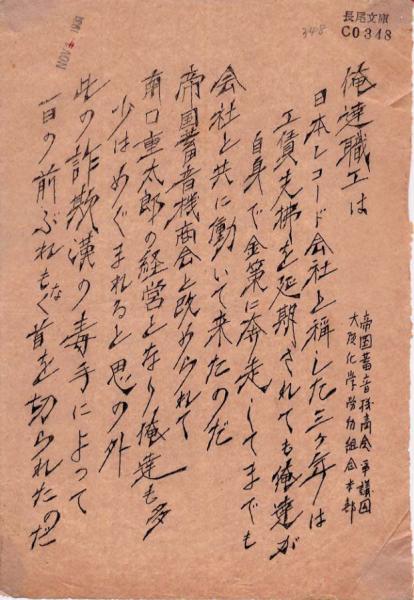 長尾文庫
C0348
348
NOV 1961
俺達職工は
日本レコード会社と称した三ヶ年は
工賃支拂を延期されても俺達が
自身で金策に奔走してまでも
会社と共に働いて来たのだ
帝国蓄音機商会と改められて
南口重太郎の経営となり俺達も多
少はめぐまれると思の外
此の詐欺漢の毒手によって
一日の前ぶれもなく首を切られたのだ
帝国蓄音機商会争議団
大阪化学労働組合本部